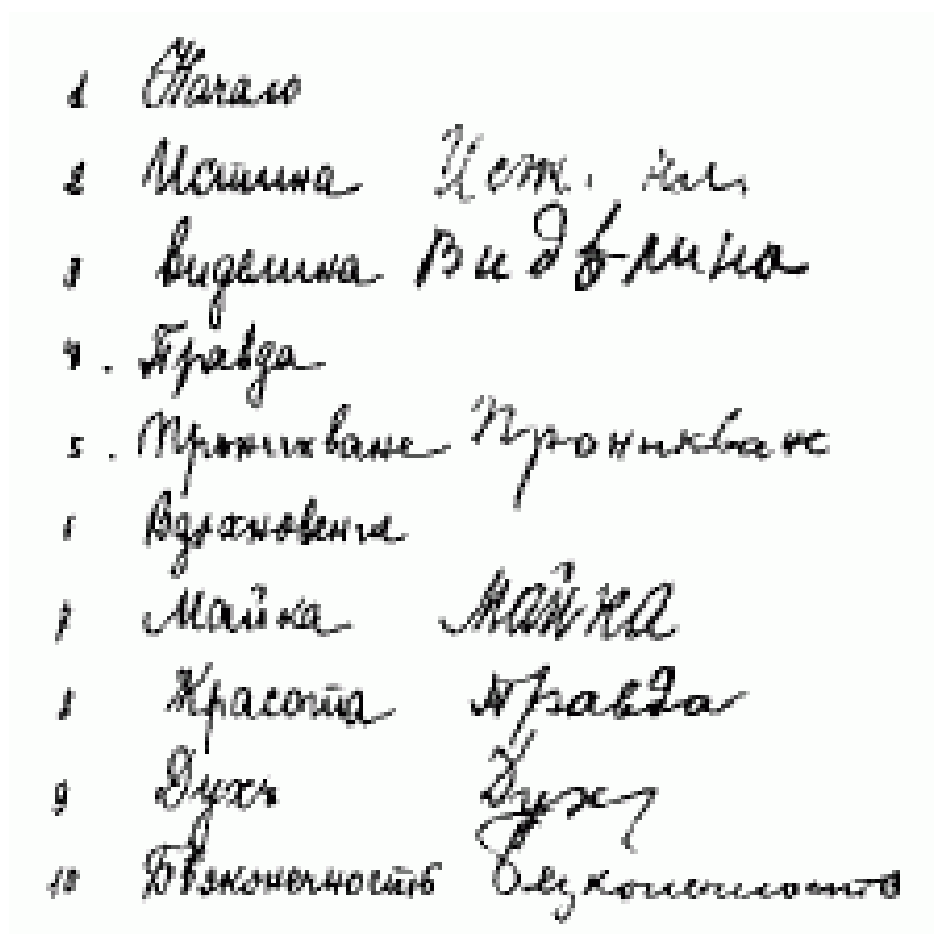 1 Начало
2 Истина
3 Виделина Видѣлина
4. Правда
5. Проникване Проникване
6 Вдохновения
7 Майка Майка
8 Красота Правда
9 Духъ Духъ
10 Безконечность